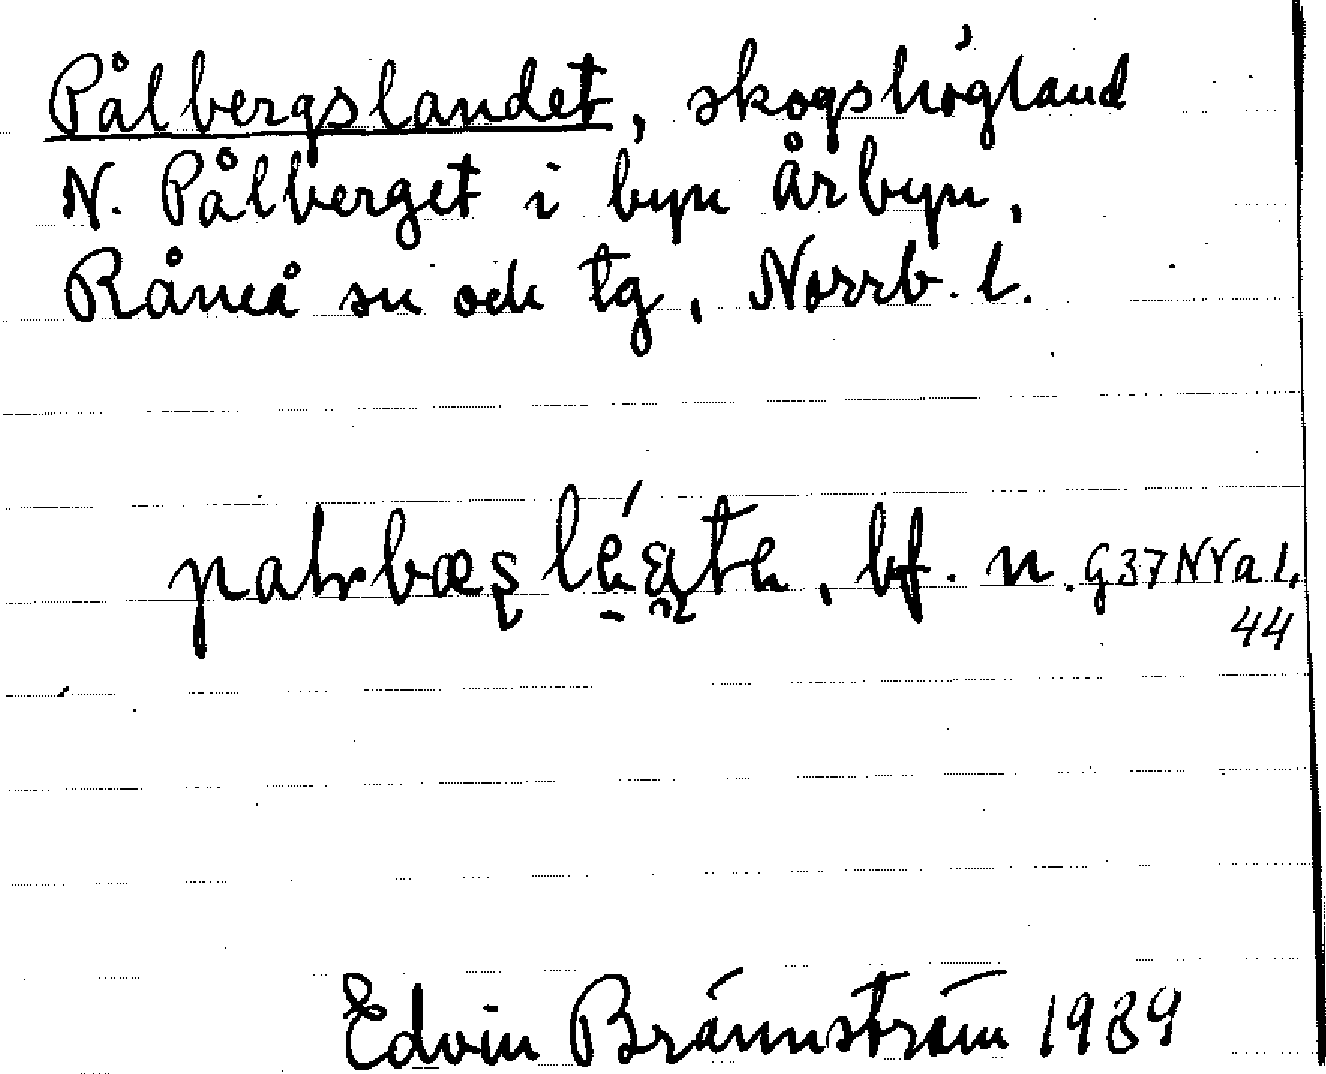 Pålbergslandet, skogshögland
N. Pålberget i byn Årbyn,
Råneå sn och tg, Norrb. l.
bf. n. G37NVa l,
44
Edvin Brännström 1989